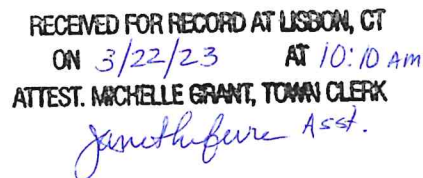 RECEIVED FOR RECORD AT LISBON, CT
ON 3/22/23 AT 10:10 AM
ATTEST. MICHELLE GRANT, TOWN CLERK
Asst.